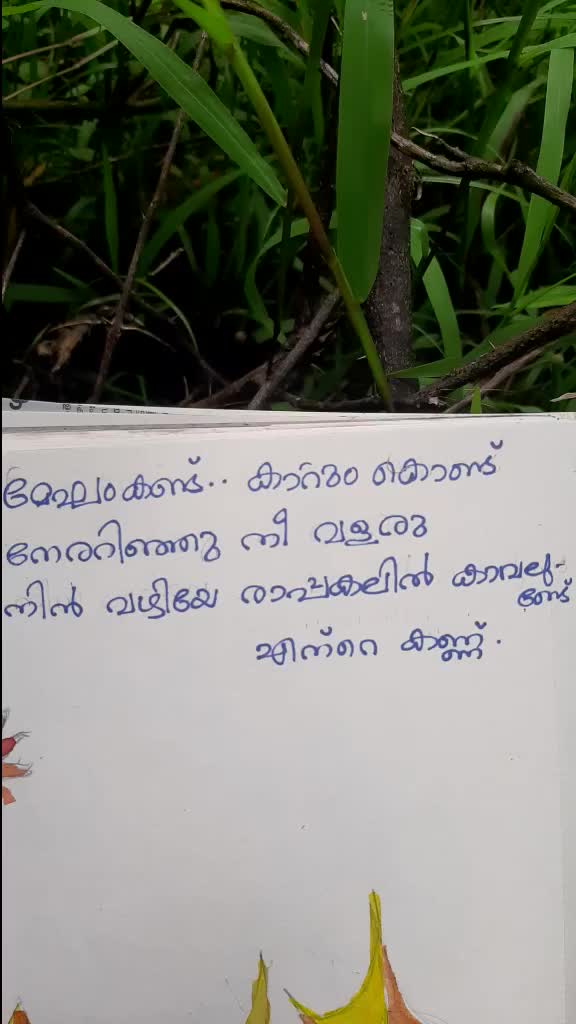 മേഘംകണ്ട്.. കാറ്റും കൊണ്ട്
നേരറിഞ്ഞു നീ വളരു
നിൻ വഴിയേ രാപ്പകലിൽ കാവലു-
ണ്ടേ
എന്റെ കണ്ണ്.